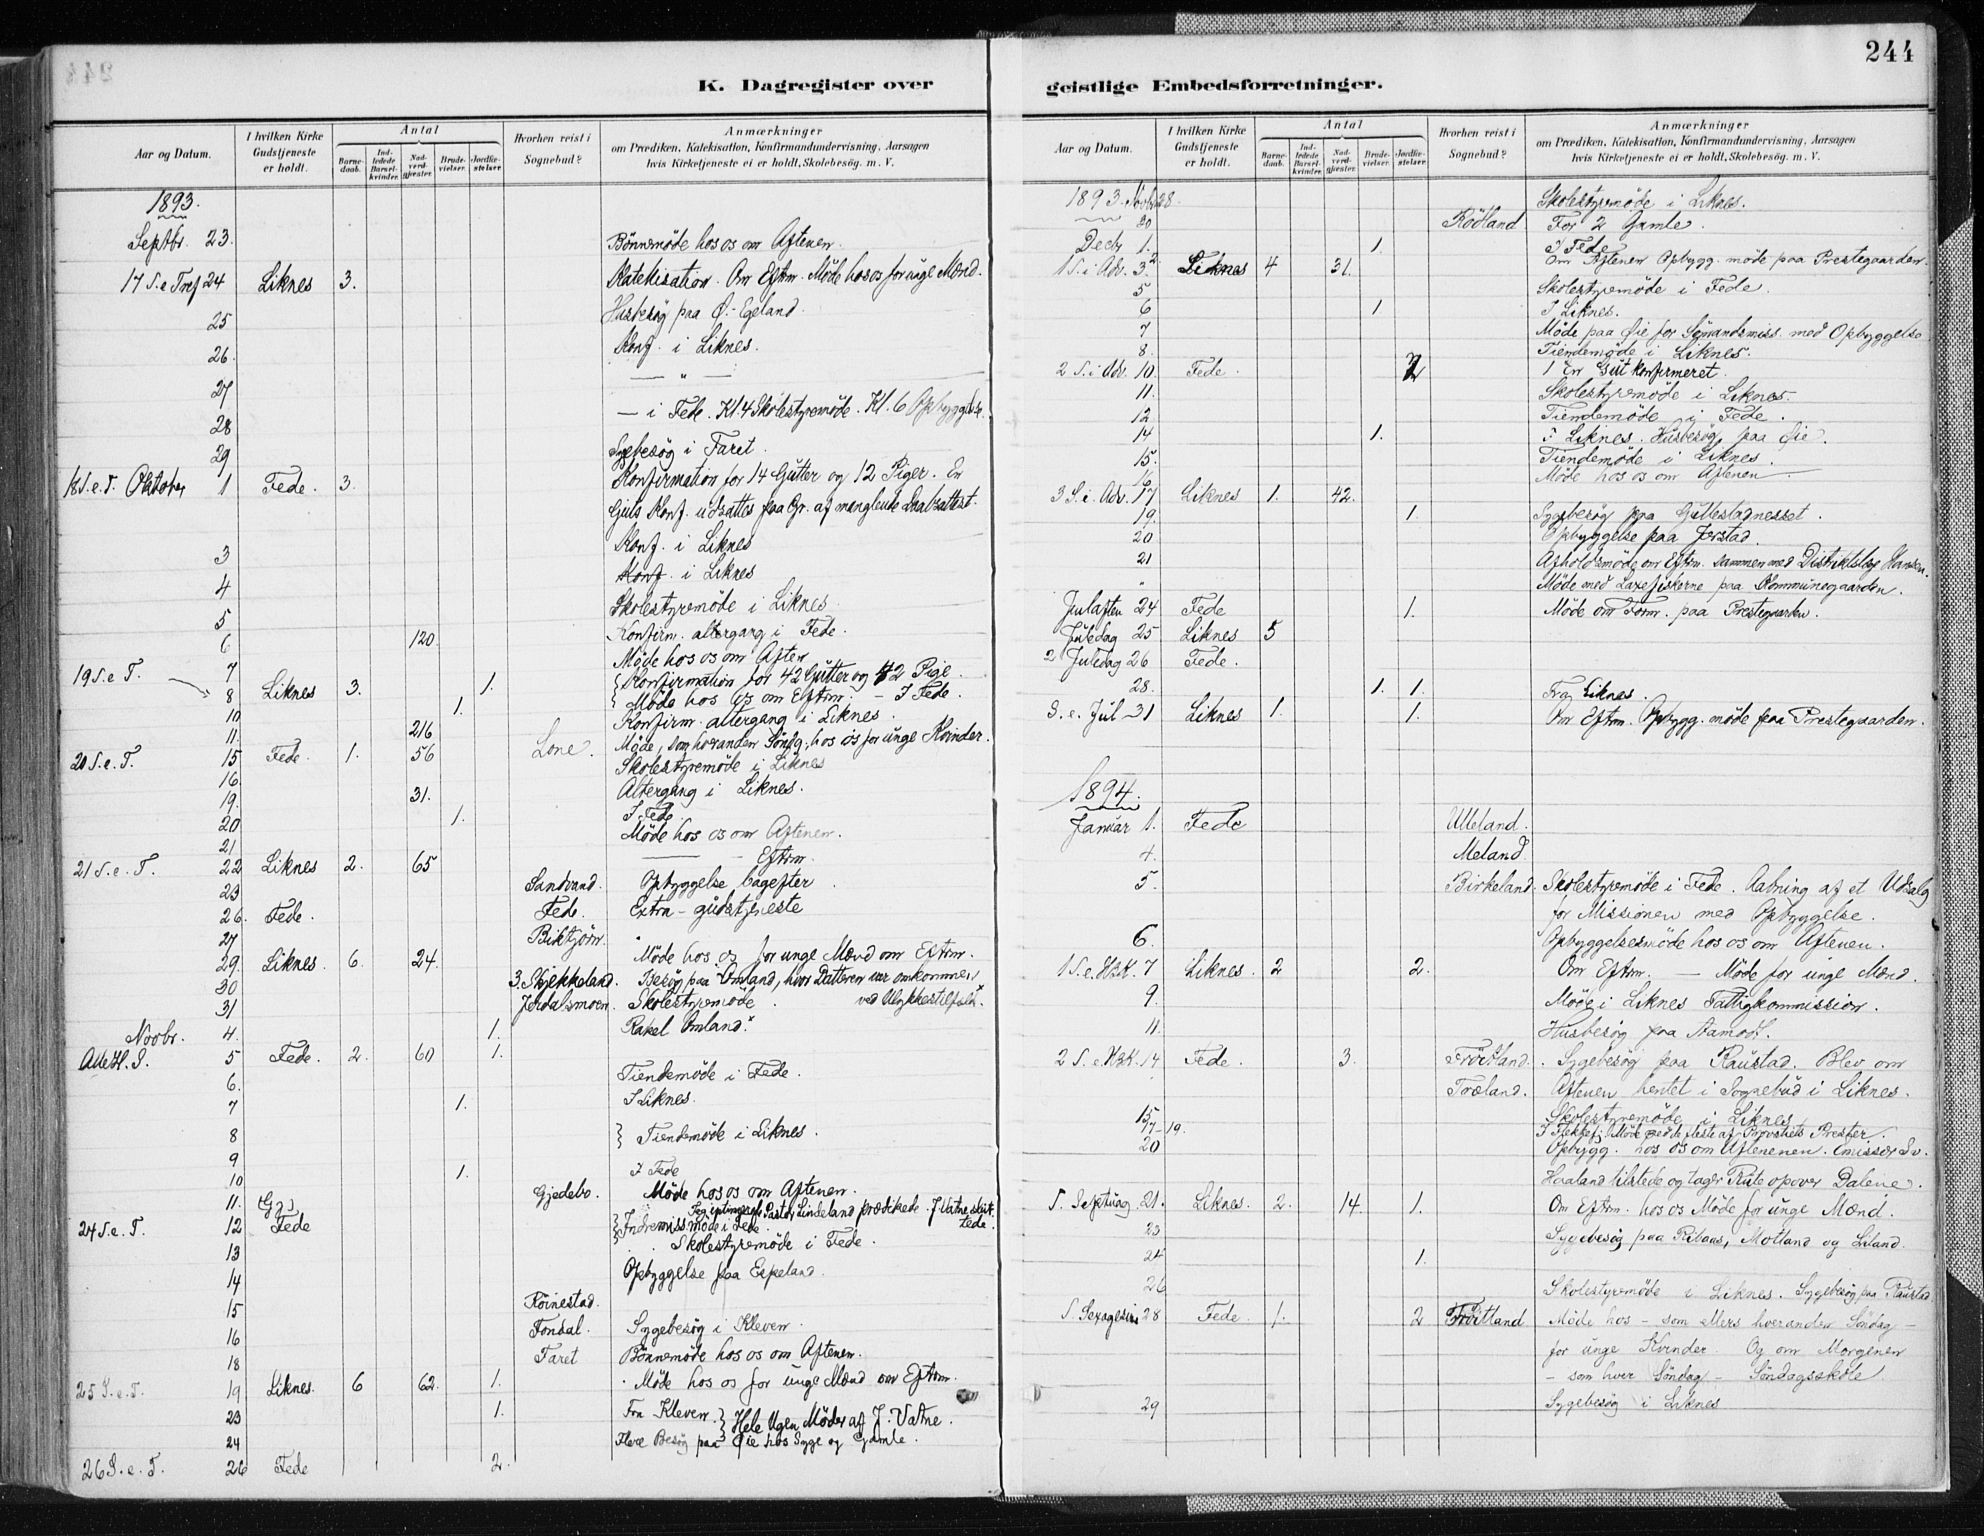 244
K. Dagregister over geistlige Embedsforretninger.
Aar og Datum. I hvilken Kirke Gudstjeneste er holdt. Antal Barnedaab. Indledede Barselkvinder. Nadverdgjæster. Brudevielser. Jordfæstelser. Hvorhen reist i Sognebud? Anmærkninger om Prædiken, Katekisation, Konfirmandundervisning, Aarsagen hvis Kirketjeneste ei er holdt, Skolebesög. m. V.
1893.
Septbr. 23. Bönnemöde hos os om Aftenen.
17 S. e Tref 24 Liknes 3. Katekisation. Om Eftm. Möde hos os for unge Mænd.
25 Husbesög paa Ö.-Egeland.
26. Konf. i Liknes.
27 — " —
28 — i Fede. Kl. 4 Skolestyremöde. Kl. 6 Opbyggelse.
29 Sygebesög i Faret.
18 S. e. T. Oktober 1 Fede. 3. Konfirmation for 14 Gutter og 12 Piger. En
Guts Konf. udsattes paa Gr. af manglende Daabsattest.
3 Konf. i Liknes
4 Konf. i Liknes
5 Skolestyremöde i Liknes
6 120. Konfirm. altergang i Fede.
7 Möde hos os om Aften
19 S. e T. 8 Liknes 3. 1. Konfirmation for 42 Gutter og 42 Pige.
Möde hos os om Eftm.
10 1. - I Fede.
11. 216 Konfirm. altergang i Liknes.
20 S. e. T. 15 Fede. 1. 56 Lone. Möde, som hveranden Söndg, hos os for unge Kvinder.
16. Skolestyremöde i Liknes
19. 31. Altergang i Liknes.
20 1. I Fede
21 Möde hos os om Aftenen.
21 S. e. T. 22 Liknes 2. 65 — - Eftm.
23 Sandvand. Opbyggelse bagefter
26. Fede. Fede. Extra-gudstjeneste
27 Biktjörn.
29. Liknes. 6. 24. Möde hos os for unge Mænd om Eftm.
30 3. Skjekkeland. Besög paa Omland, hvor Datteren var omkommen
31 Jerdalsmoen. Skolestyremöde. ved Ulykkestilfæld.
Novbr. 4. 1. Rakel Omland.
Alle H. S. 5 Fede. 2. 60 1.
6. Tiendemöde i Fede.
7 1. I Liknes.
8 Tiendemöde i Liknes.
9
10 1. I Fede
11. Gjedebo. Möde hos os om Aftenen.
24 S. e. T. 12 Fede Pastor Lindeland prædikede. J. Vatne
Indremiss.möde i Fede.
13 Skolestyremöde i Fede.
14 Opbyggelse paa Espeland.
15 Röinestad.
16 Fondal. Sygebesög i Kleven.
18 Faret Bönnemöde hos os om Aftenen.
25 S. e. T. 19 Liknes. 6 62. 1. Möde hos os for unge Mænd om Eftm.
23 1. Fra Kleven. Hele Ugen Möder af J. Vatne.
24 Flere Besög paa Öie hos Syge og Gamle.
26 S. e. T. 26 Fede 2.
Aar og Datum. I hvilken Kirke Gudstjeneste er holdt. Antal Barnedaab. Indledede Barselkvinder. Nadverdgjæster. Brudevielser. Jordfæstelser. Hvorhen reist i Sognebud? Anmærkninger om Prædiken, Katekisation, Konfirmandundervisning, Aarsagen hvis Kirketjeneste ei er holdt, Skolebesög. m. V.
1893. Novbr 28. Skolestyremöde i Liknes.
Rödland For 2 Gamle.
Decbr 1. 1. I Fede
1 S. i Adv. 3. Liknes 4 31. Om Aftenen Opbygg. möde paa Prestegaarden.
5 Skolestyremöde i Fede.
6 1 I Liknes.
7 Möde paa Öie for Sömandsmiss. med Opbyggelse
8. Tiendemöde i Liknes.
2 S. i Adv. 10. Fede. 1 En Gut konfirmeret.
11. Skolestyremöde i Liknes.
12 Tiendemöde i Fede.
14 1. I Liknes. Husbesög paa Öie.
15. Tiendemöde i Liknes.
16 Möde hos os om Aftenen
3 S. i. Adv. 17 Liknes 1. 42.
19. 1. Sygebesög paa Gullestadnesset.
20 Opbyggelse paa Jerstad.
21 Afholdsmöde om Eftm. sammen med Distriktslæge Hansen.
" Möde med Laxefiskerne paa Kommunegaarden.
Julaften 24 Fede 1. Möde om Form. paa Prestegaarden.
Juledag 25 Liknes 5
2 Juledag 26 Fede.
28. 1. 1. Fra Liknes.
S. e. Jul 31 Liknes 1. 1. Om Eftm. Opbygg. möde paa Prestegaarden.
1894.
Januar 1. Fede Ulleland.
4. Meland.
5. Birkeland. Skolestyremöde i Fede. Aabning af et Udsalg
for Missionen med Opbyggelse.
6. Opbyggelsesmöde hos os om Aftenen.
1 S. e. H3K. 7 Liknes. 2 2. Om Eftm. — Möde for unge Mænd.
9. Möde i Liknes Fattigkommission.
11. Husbesög paa Aamodt.
2 S. e. H3K. 14 Fede. 3. Sygebesög paa Raustad. Blev om
Træland. Aftenen hentet i Sognebud i Liknes.
15 Skolestyremöde i Liknes
17-19. I Flekkefj. Möde med de fleste af Provstiets Prester.
20 Opbygg. hos os om Aftenenen. Emissær Sv.
Haaland tilstede og tager Rute opover Dalene.
S. Septuag 21. Liknes. 2. 14. 1. Om Eftm. hos os Möde for unge Mænd.
23 Sygebesög paa Ribaas, Motland og Liland.
24 1.
26 Skolestyremöde i Liknes. Sygebesög paa Raustad
S. Sexagesim 28 Fede. 1. 2 Fröitland Möde hos - som ellers hveranden Söndag -
for unge Kvinder. Og om Morgenen
- som hver Söndag - Söndagsskole.
29 Sygebesög i Liknes